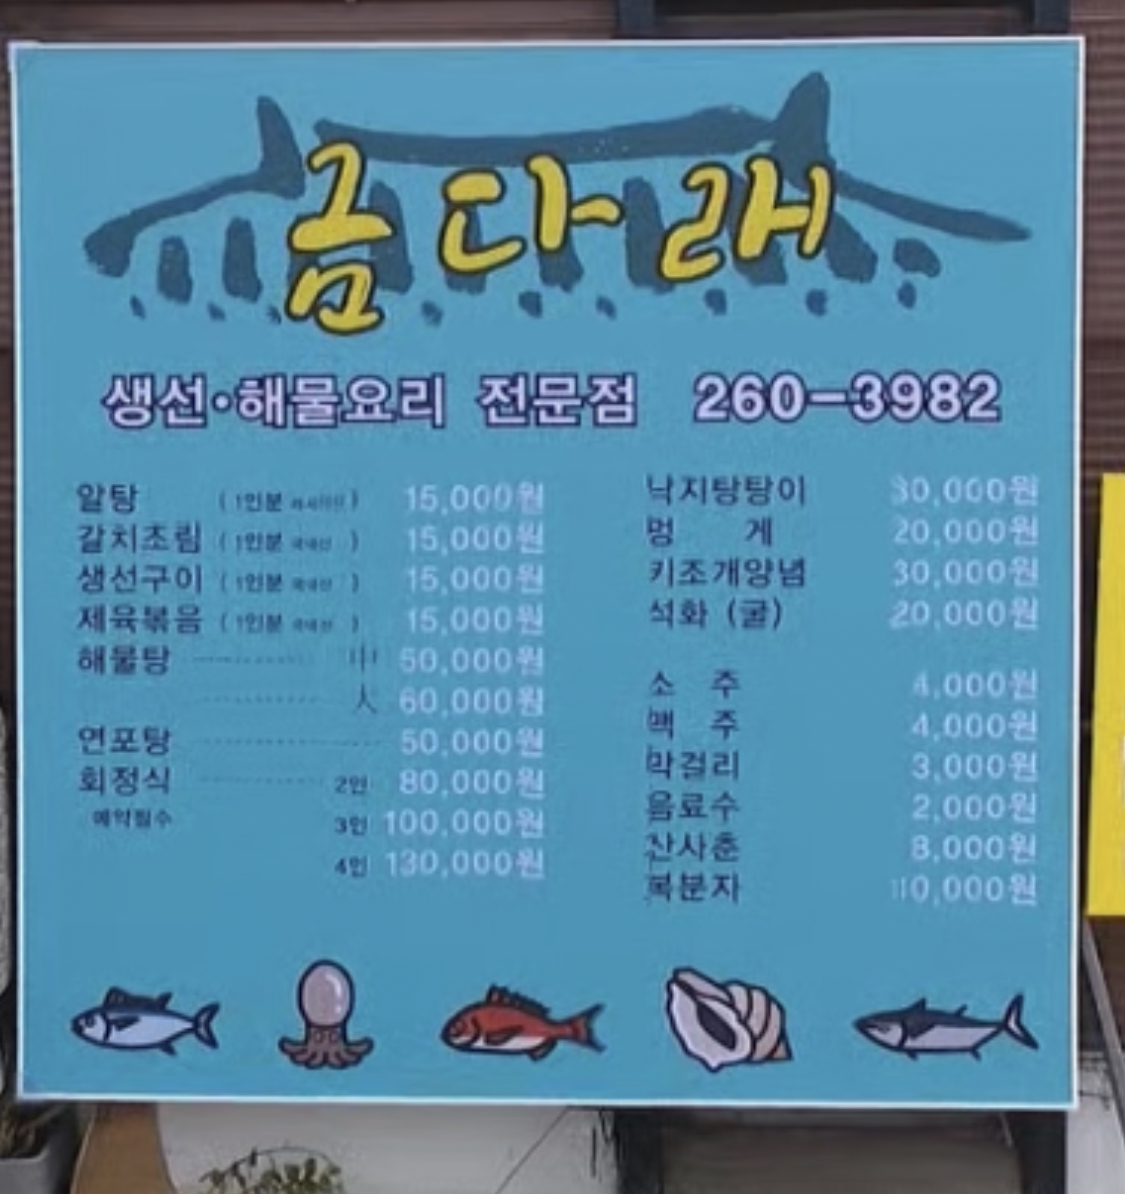 금다래
생선·해물요리 전문점 260-3982
알탕 (1인분 러시아산) 15,000원
갈치조림 (1인분 국내산) 15,000원
생선구이 (1인분 국내산) 15,000원
제육볶음 (1인분 국내산) 15,000원
해물탕 中 50,000원
大 60,000원
연포탕 50,000원
회정식 2인 80,000원
예약필수 3인 100,000원
4인 130,000원
낙지탕탕이 30,000원
멍 게 20,000원
키조개양념 30,000원
석화 (굴) 20,000원
소 주 4,000원
맥 주 4,000원
막걸리 3,000원
음료수 2,000원
산사춘 8,000원
복분자 10,000원